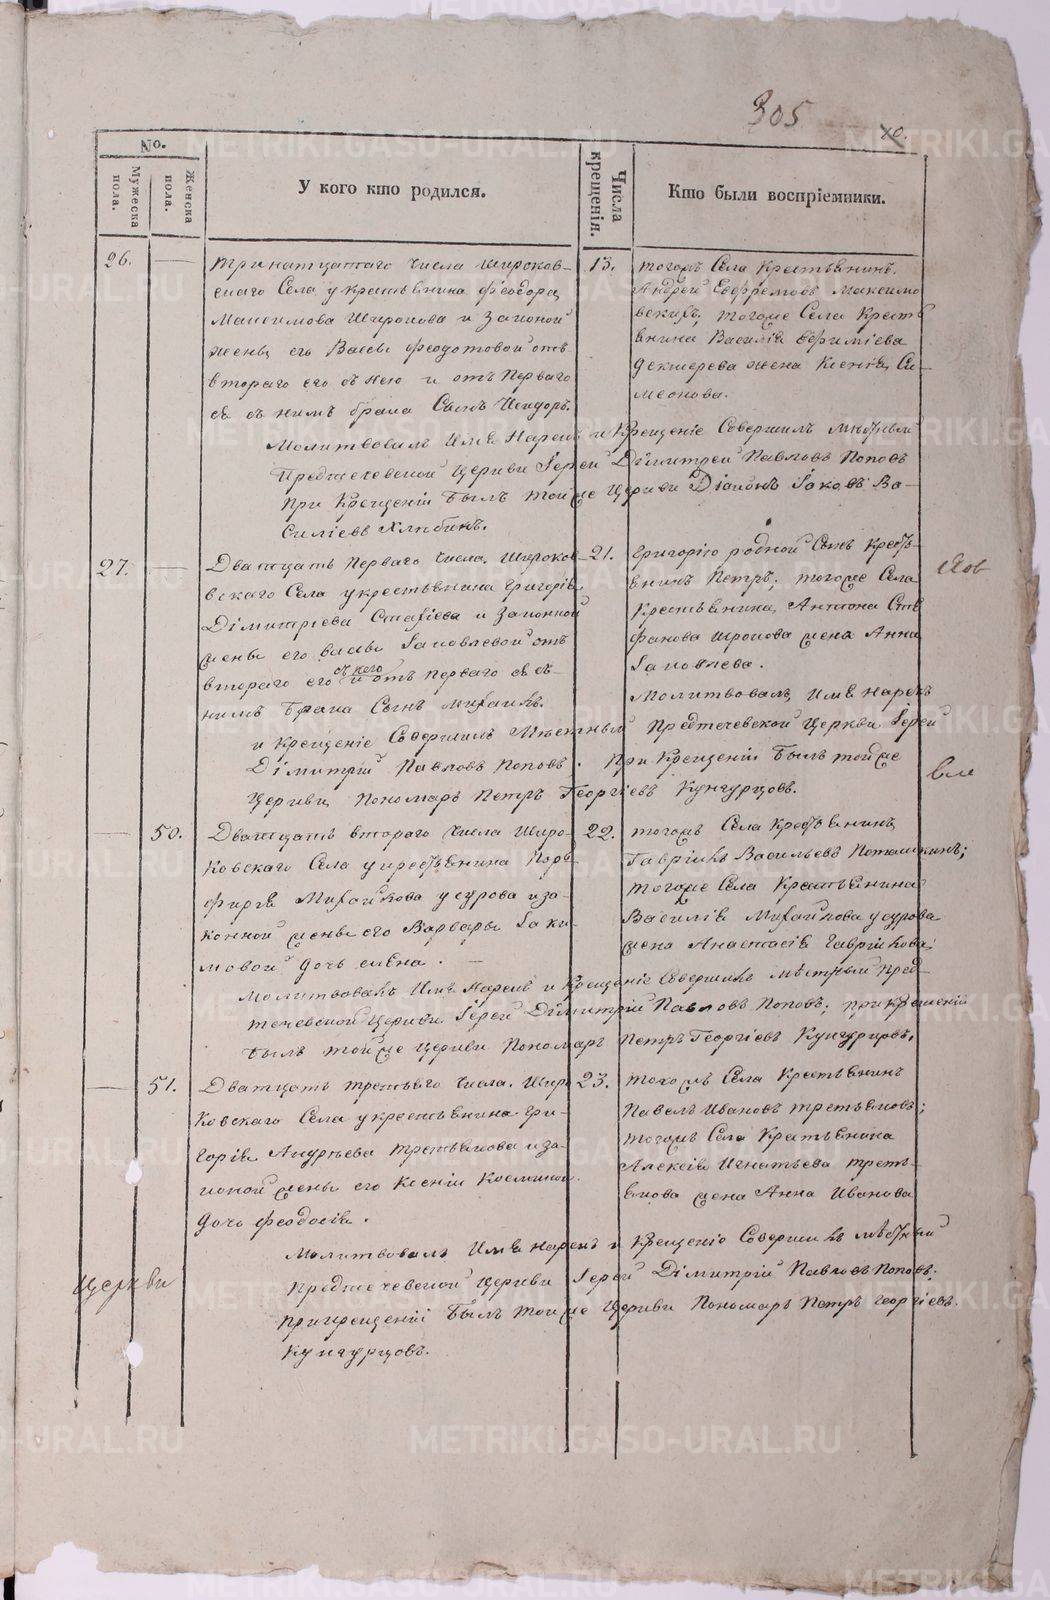 305
40.
No.
Мужеска пола.
Женска пола.
У кого кто родился.
Числа крещенія.
Кто были воспріемники.
26.
тринатцатаго числа широков-
скаго Села у крестьянина Феодора
Максимова Широкова и законой
жены его Васы Феодотовой отъ
втораго его съ нею и отъ перваго
ея съ нимъ брака Сынъ Исидоръ.
13.
тогожъ Села Крестьянинъ
Андрей Евфремовъ Максимо
вскихъ; тогоже Села Кресть
янина Василія Ефиміева
Дехтерева жена Ксенія Си-
меонова.
Молитвовалъ Имя Нарекъ и Крещеніе Совершилъ Мѣстный
Предтечевской Церкви Іерей Дімитрей Павловъ Поповъ
при Крещеніи былъ той же Церкви Діаконъ Іаковъ Ва-
силіевъ Хлыбикъ.
27.
Дватцать перваго числа. Широко-
вскаго Села у крестьянина Григорія
Дімитріева Стахіева и Законной
жены его Васы Іаковлевой отъ
втораго его съ нею и отъ перваго ея съ
нимъ брака Сынъ Михаилъ.
21.
Григорію родной Сынъ Кресть-
янинъ Петръ; тогоже Села
Крестьянина Антона Сте
фанова Широкова жена Анна
Іаковлева.
Молитвовалъ, Имя нарекъ
и Крещеніе Совершилъ Мѣстный Предтечевской Церкви Іерей
Дімитрій Павловъ Поповъ. При Крещеніи былъ тойже
Церкви Пономарь Петръ Георгіевъ Кунгурцовъ.
50.
Дватцать втораго числа Широ-
ковскаго Села у крестьянина Пор-
фирія Михайлова Усурова и за-
конной жены его Варвары Іаки-
мовой дочь Елена.
22.
тогожъ Села Крестьянинъ
Гавріилъ Васильевъ Поташкинъ;
тогоже Села Крестьянина
Василія Михайлова Усурова
жена Анастасія Гавріилова;
Молитвовалъ Имя Нарекъ и Крещеніе Совершилъ Мѣстный Пред-
течевской Церкви Іерей Дімитрій Павловъ Поповъ; при крещеніи
былъ той же Церкви Пономарь Петръ Георгіевъ Кунгурцовъ.
51.
Дватцать третьяго числа. Широ
ковскаго Села у крестьянина Гри-
горія Андрѣева Третьякова и за-
коной жены его Ксеніи Косминой
дочь Феодосія.
23.
тогожъ Села Крестьянинъ
Павелъ Ивановъ Третьяковъ;
тогожъ Села Крестьянина
Алексія Игнатьева Треть-
якова жена Анна Иванова
Молитвовалъ Имя Нарекъ и Крещеніе Совершилъ Мѣстный
Предтечевской Церкви Іерей Дімитрій Павловъ Поповъ;
при крещеніи былъ той же Церкви Пономарь Петръ Георгіевъ.
Кунгурцовъ.
Церкви
METRIKI.GASO-URAL.RU